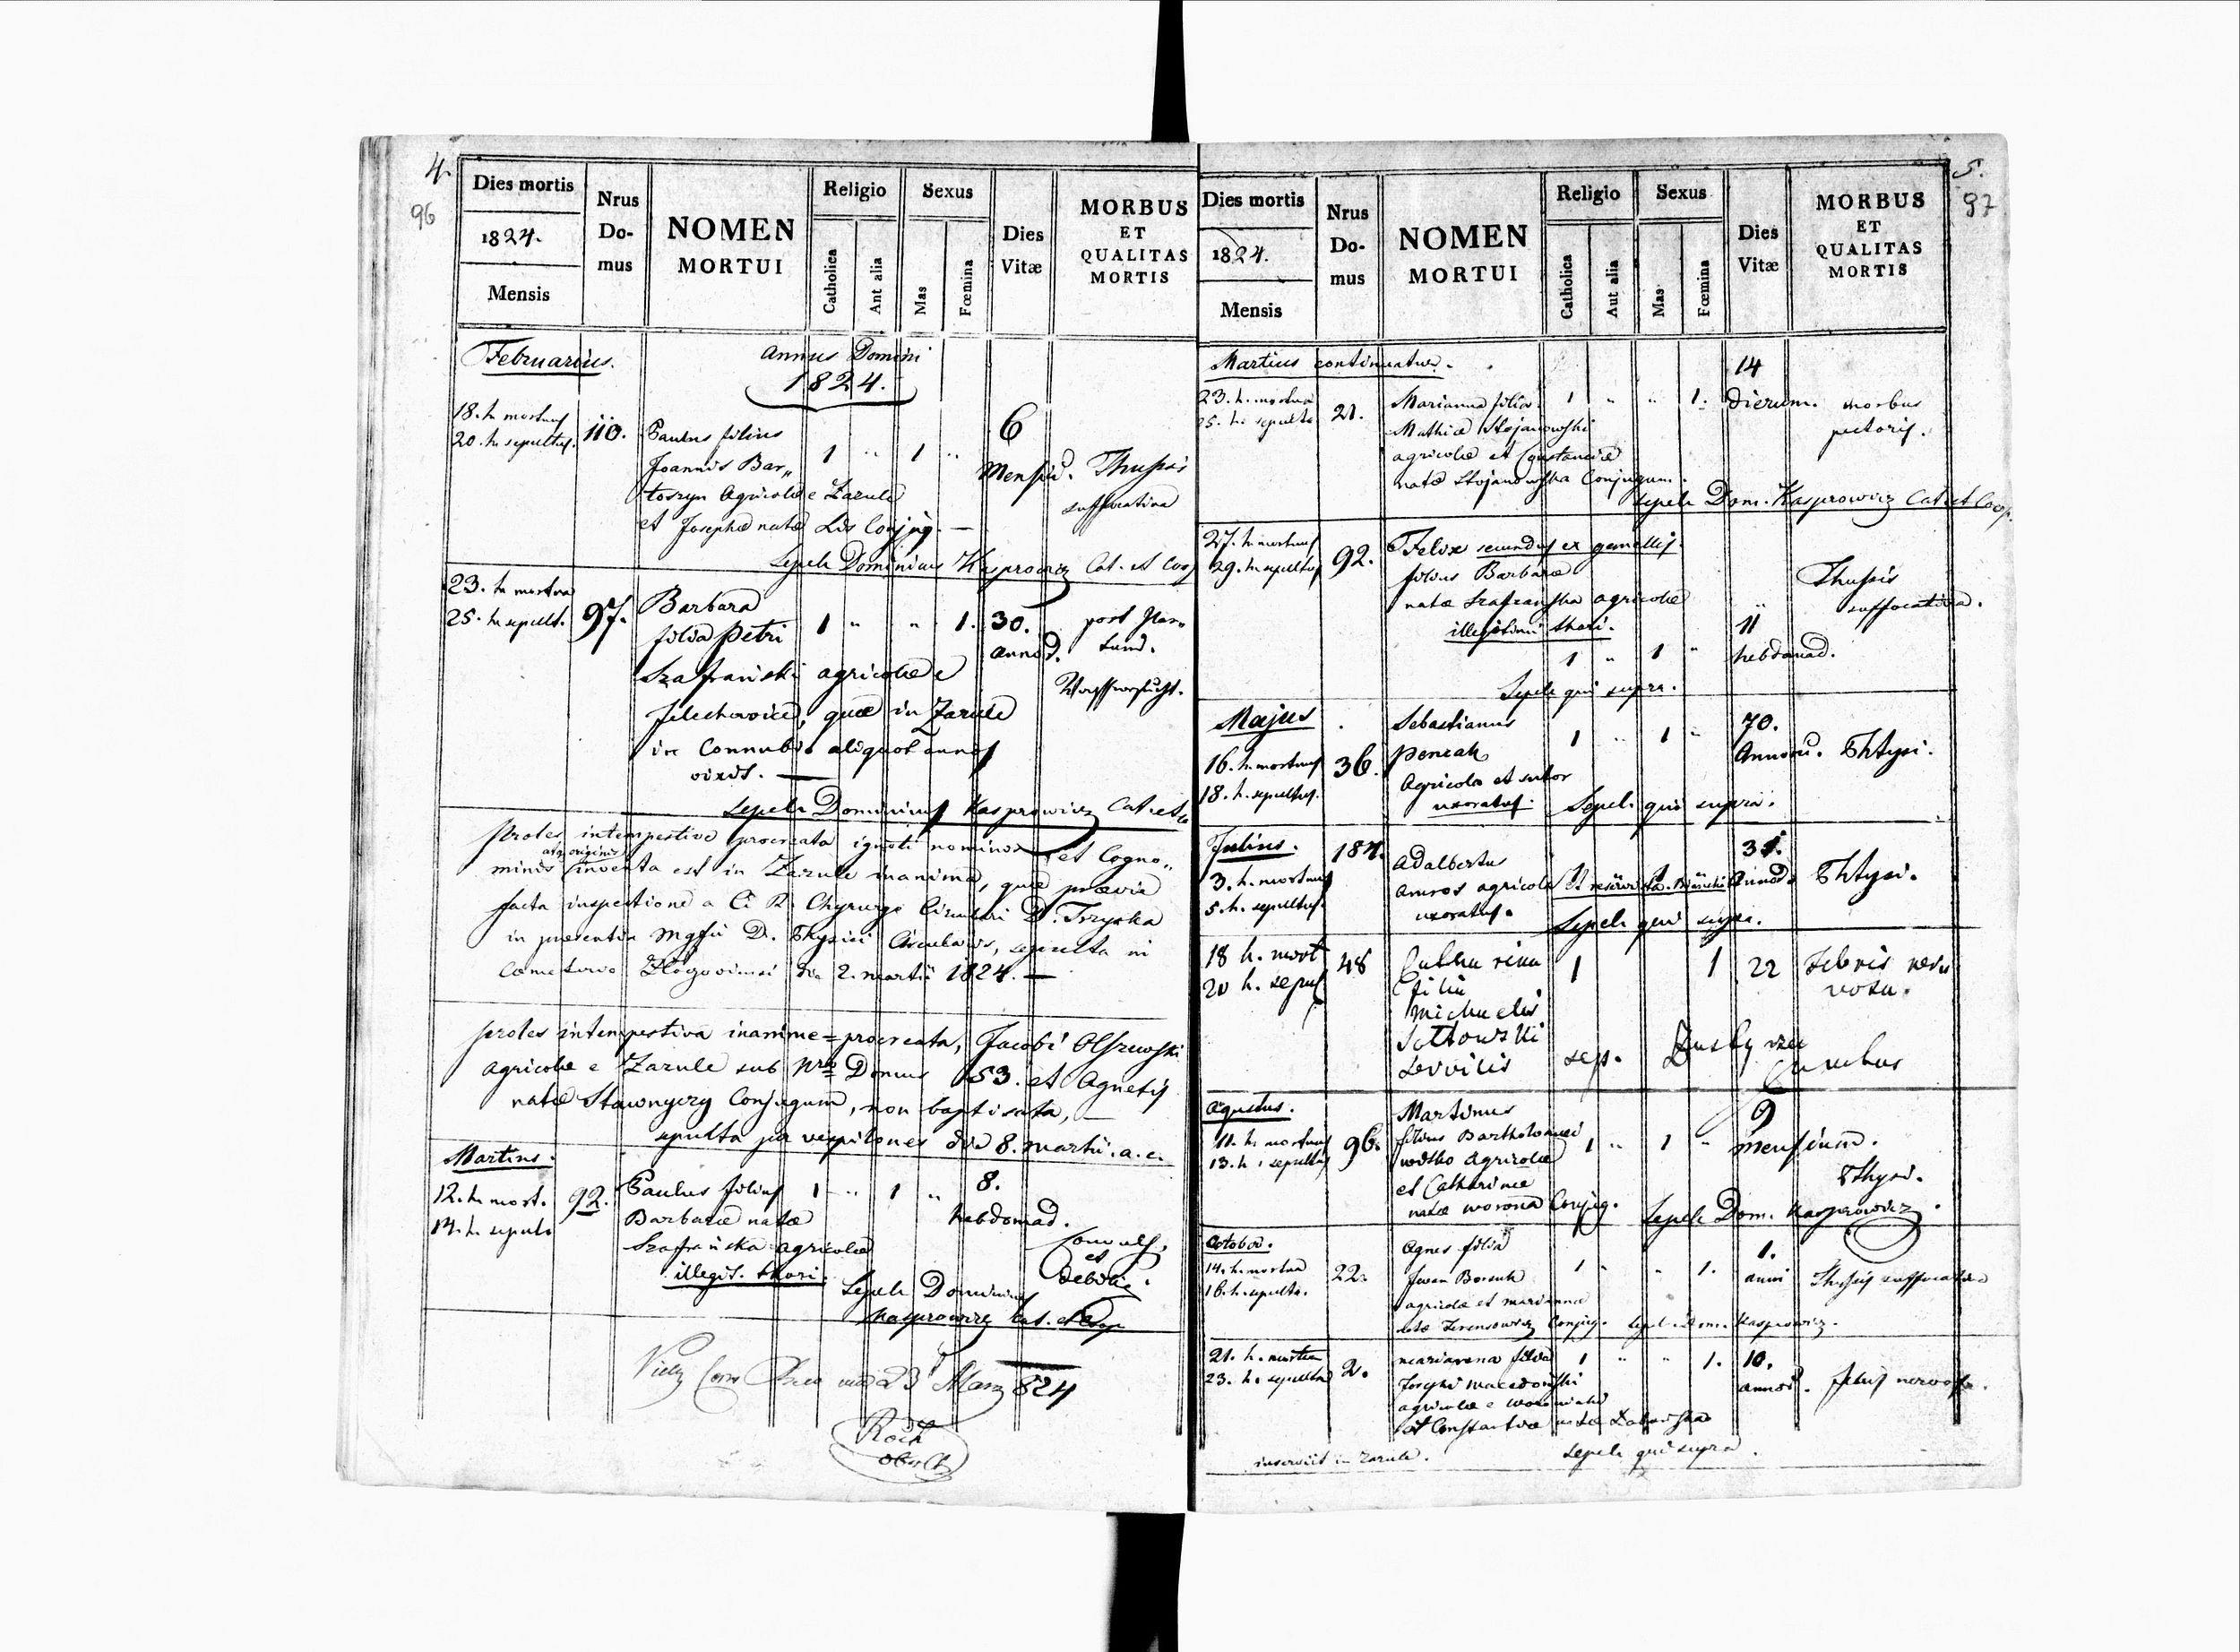 4.
96
Dies mortis
1824.
Mensis
Nrus
Do-
mus
NOMEN
MORTUI
Religio
Catholica
Aut alia
Sexus
Mas
Fœmina
Dies
Vitæ
MORBUS
ET
QUALITAS
MORTIS
Februarius.
Annus Domini
1824.
18. h. mortuus
20. h. sepultus.
110.
Paulus filius
Joannis Bar„
toszyn Agricolæ e Zarule
et Josephæ natæ Lis Conjug. —
1 „ 1 „
6
Mensiu.
Thussis
suffocativa
Sepeli Dominicus Kasprowicz Cat. et Coop
23. h. mortua
25. h. sepult.
97.
Barbara
filia Petri
Szafranski agricolæ e
quæ in Zarule
in Connubio aliquot annos
vixit. —
1 „ „ 1.
30.
annor.
post Par„
tum.
Sepeli Dominicus Kasprowicz Cat. et
Proles intempestive procreata ignoti nominis et Cogno„
minis atq. originis inventa est in Zarule inanima, quæ prævia
facta inspectione a C. R. Chyrurgo Circulari D. Trzyska
in præsentia D. Physici Circularis, sepulta in
die 2. martii 1824. —
Proles intempestiva inanime procreata, Jacobi Olszewski
agricolæ e Zarule sub Nro Domus 53. et Agnetis
natæ Conjugum, non baptisata, —
sepulta per vespilones die 8. martii. a. c.
Martius.
12. h. mort.
14. h. sepult.
92.
Paulus filius
Barbaræ natæ
Szafrańska agricolæ
illegit. thori.
1 „ 1 „
8.
hebdomad.
Convuls.
et
debilit.
Sepeli Dominicus
Kasprowicz Cat. et Coop
23 Marz 824
5.
97
Dies mortis
1824.
Mensis
Nrus
Do-
mus
NOMEN
MORTUI
Religio
Catholica
Aut alia
Sexus
Mas
Fœmina
Dies
Vitæ
MORBUS
ET
QUALITAS
MORTIS
Martius continuatur.
23. h. mortua
25. h. sepulta
21.
Marianna filia
Mathiæ Stojanowski
agricolæ et Constanciæ
natæ Stojanowska Conjugum.
1 „ „ 1.
14
dierum.
morbus
pectoris.
Sepeli Dom. Kasprowicz Cat. et Coop.
27. h. mortuus
29. h. sepultus
92.
Felix secundus ex gemellis.
filius Barbaræ
natæ Szafrańska agricolæ
illegitimi thori.
1 „ 1 „
11
hebdomad.
Thussis
suffocativa.
Sepeli qui supra.
Majus
16. h. mortuus
18. h. sepultus.
36.
Sebastianus
Pencak
Agricola et sutor
uxoratus.
1 „ 1 „
70.
Annoru.
Phtysi.
Sepeli qui supra.
Julius.
3. h. mortuus
5. h. sepultus.
Adalbertus
agricola
uxoratus.
Annor.
Phtysi.
Sepeli qui supra.
18 h. mort
20 h. sepul
48
Catharina
filia
Michaelis
servilis
1 1 22
Febris ner
vosa.
sep.
Agustus.
11. h. mortuus
13. h. sepultus
96.
Martinus
filius Bartholomæi
agricolæ
et Catharinæ
natæ Worona Conjug.
1 „ 1 „
9
mensium.
Phtysi.
Sepeli Dom. Kasprowicz.
October.
14. h. mortua
16. h. sepulta.
22.
Agnes filia
agricolæ et Marianna
Conjug.
1 „ „ 1.
1.
anni
Thussis suffocativa
Sepeli Dom. Kasprowicz.
21. h. mortua
23. h. sepulta
2.
Marianna filia
Josephi Macedonski
agricolæ e
et Constantiæ natæ
inserviit in Zarule.
1 „ „ 1.
10.
annor.
febris nervosa.
Sepeli qui supra.